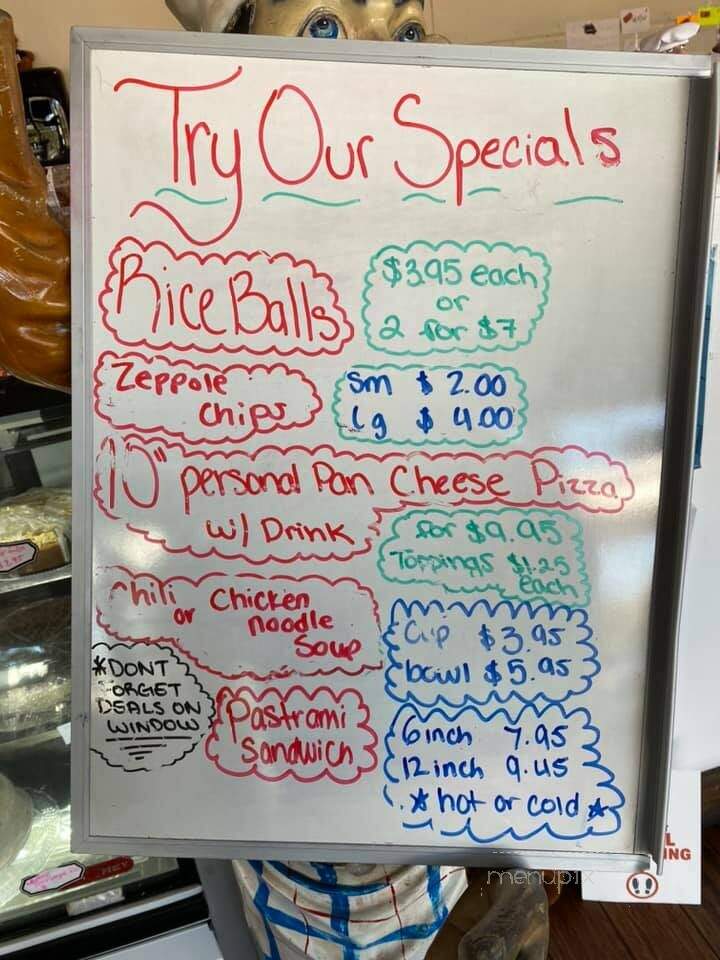 Try Our Specials
Rice Balls
$3.95 each
or
2 for $7
Zeppole
chips
sm $ 2.00
lg $ 4.00
10" personal Pan Cheese Pizza
w/ Drink
for $9.95
Toppings $1.25
each
chili
or
Chicken
noodle
Soup
Cup $3.95
bowl $5.95
*DONT
FORGET
DEALS ON
WINDOW
Pastrami
Sandwich
6inch 7.95
12inch 9.45
* hot or cold *
menupix